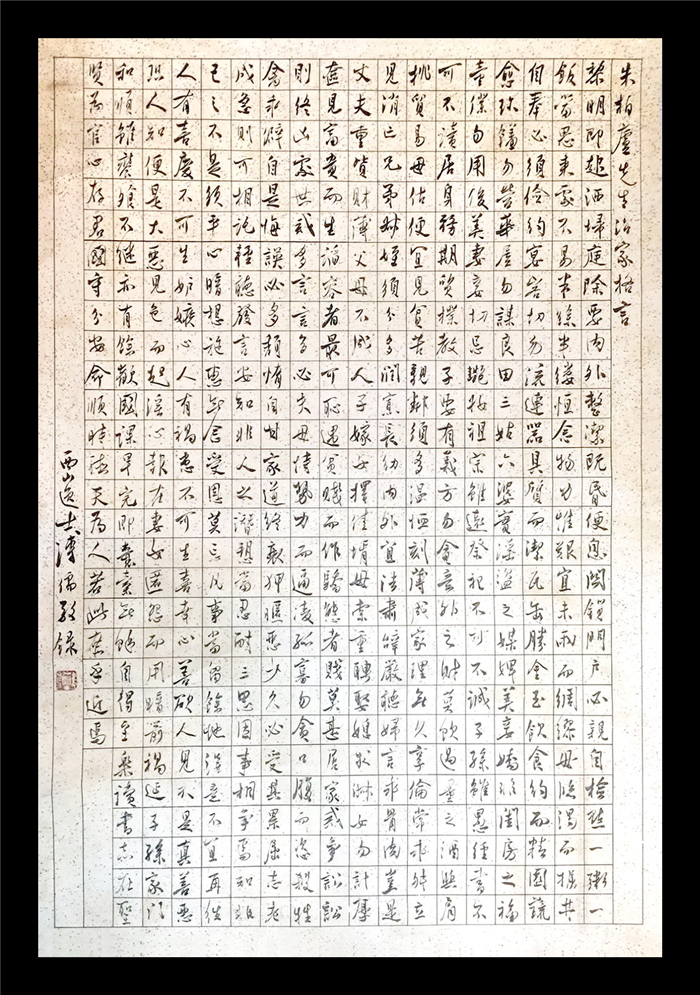 朱柏廬先生治家格言
黎明即起洒掃庭除要內外整潔既昏便息關鎖門戶必親自檢點一粥一
飯當思來處不易半絲半縷恒念物力惟艱宜未雨而綢繆毋臨渴而掘井
自奉必須儉約宴客切勿流連器具質而潔瓦缶勝金玉飲食約而精園蔬
愈珍饈勿營華屋勿謀良田三姑六婆實淫盜之媒婢美妾嬌非閨房之福
童僕勿用俊美妻妾切忌艷妝祖宗雖遠祭祀不可不誠子孫雖愚經書不
可不讀居身務期質樸教子要有義方勿貪意外之財莫飲過量之酒與肩
挑貿易毋佔便宜見貧苦親鄰須多溫恤刻薄成家理無久享倫常乖舛立
見消亡兄弟叔姪須分多潤寡長幼內外宜法肅辭嚴聽婦言乖骨肉豈是
丈夫重貲財薄父母不成人子嫁女擇佳婿毋索重聘娶媳求淑女勿計厚
奩見富貴而生諂容者最可恥遇貧賤而作驕態者賤莫甚居家戒爭訟訟
則終凶處世戒多言言多必失毋恃勢力而逼凌孤寡勿貪口腹而恣殺牲
禽乖僻自是悔誤必多頹惰自甘家道終衰狎暱惡少久必受其累屈志老
成急則可相託輕聽發言安知非人之譖愬當忍耐三思因事相爭焉知非
己之不是須平心暗想施惠勿念受恩莫忘凡事當留餘地得意不宜再往
人有喜慶不可生妒嫉心人有禍患不可生喜幸心善欲人見不是真善惡
恐人知便是大惡見色而起淫心報在妻女匿怨而用暗箭禍延子孫家門
和順雖饔飧不繼亦有餘歡國課早完即囊橐無餘自得至樂讀書志在聖
賢為官心存君國守分安命順時聽天為人若此庶乎近焉
西山逸士溥儒敬錄